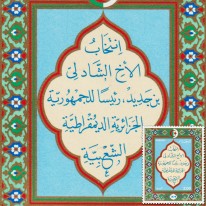 انتخاب
الأخ الشاذلي
بن جديد، رئيسا للجمهورية
الجزائرية الديمقراطية
الشعبية